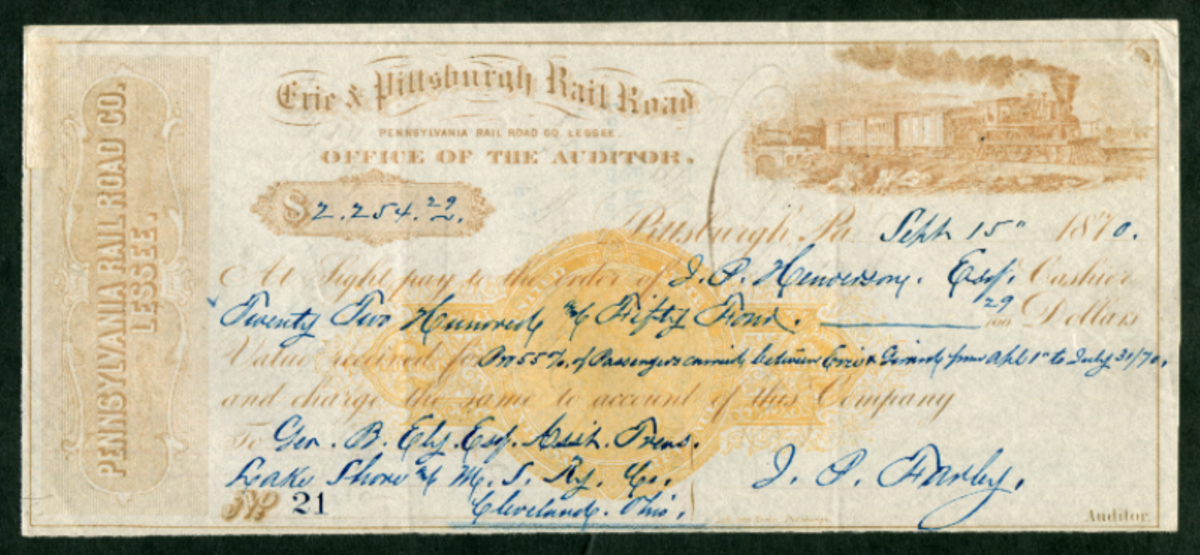 PENNSYLVANIA RAIL ROAD CO.
LESSEE.
Erie & Pittsburgh Rail Road
PENNSYLVANIA RAIL ROAD CO. LESSEE.
OFFICE OF THE AUDITOR.
$ 2.254.29.
Pittsburgh, Pa. Sept 15" 1870.
At Sight pay to the order of J. P. Henderson. Esqr. Cashier
Twenty Two Hundred & Fifty Four. 29/100 Dollars
Value received for 55%. of Passengers carried between Erie & Girard from Apl 1" to July 31/70.
and charge the same to account of this Company
To Geo. B. Ely. Esq. Asst. Treas.
Lake Shore & M. S. Ry. Co.
Cleveland. Ohio.
No. 21
J. P. Farley.
Auditor.